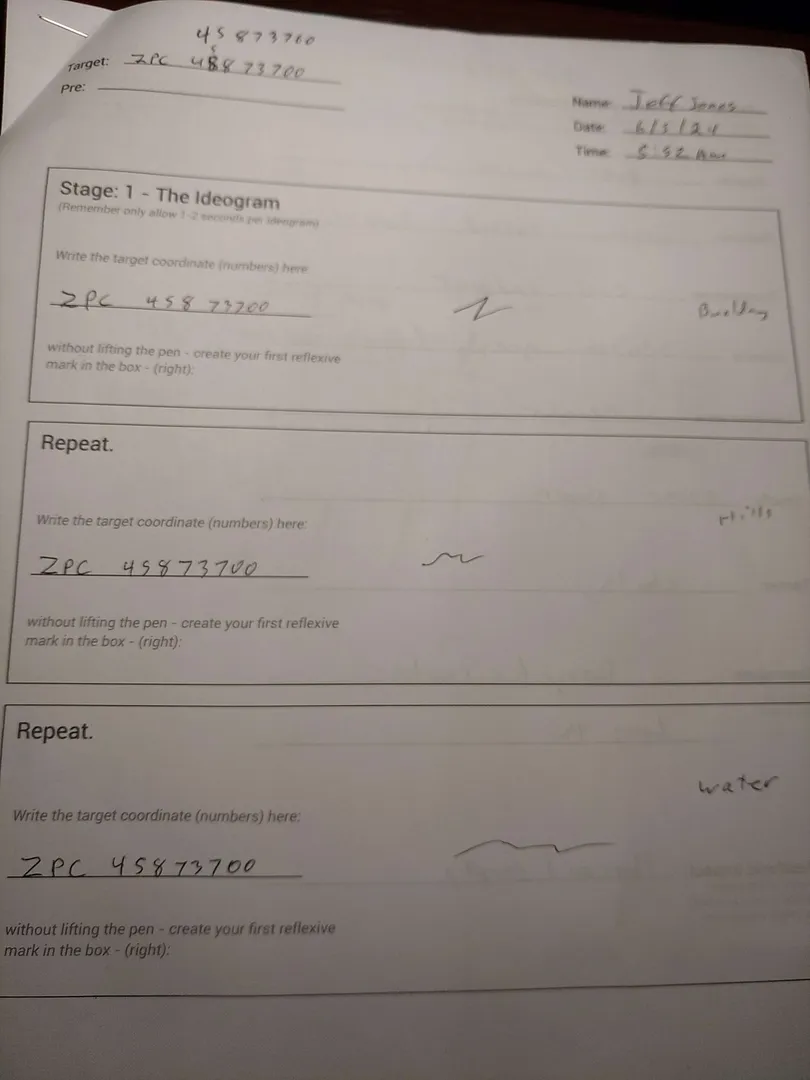 45 873700
Target: ZPC 45873700
Pre:
Name: Jeff Jones
Date: 6/3/24
Time: 5:52
Stage: 1 - The Ideogram
(Remember only allow 1-2 seconds per ideogram)
Write the target coordinate (numbers) here:
ZPC 45873700
Building
without lifting the pen - create your first reflexive
mark in the box - (right):
Repeat.
Hills
Write the target coordinate (numbers) here:
ZPC 45873700
without lifting the pen - create your first reflexive
mark in the box - (right):
Repeat.
water
Write the target coordinate (numbers) here:
ZPC 45873700
without lifting the pen - create your first reflexive
mark in the box - (right):